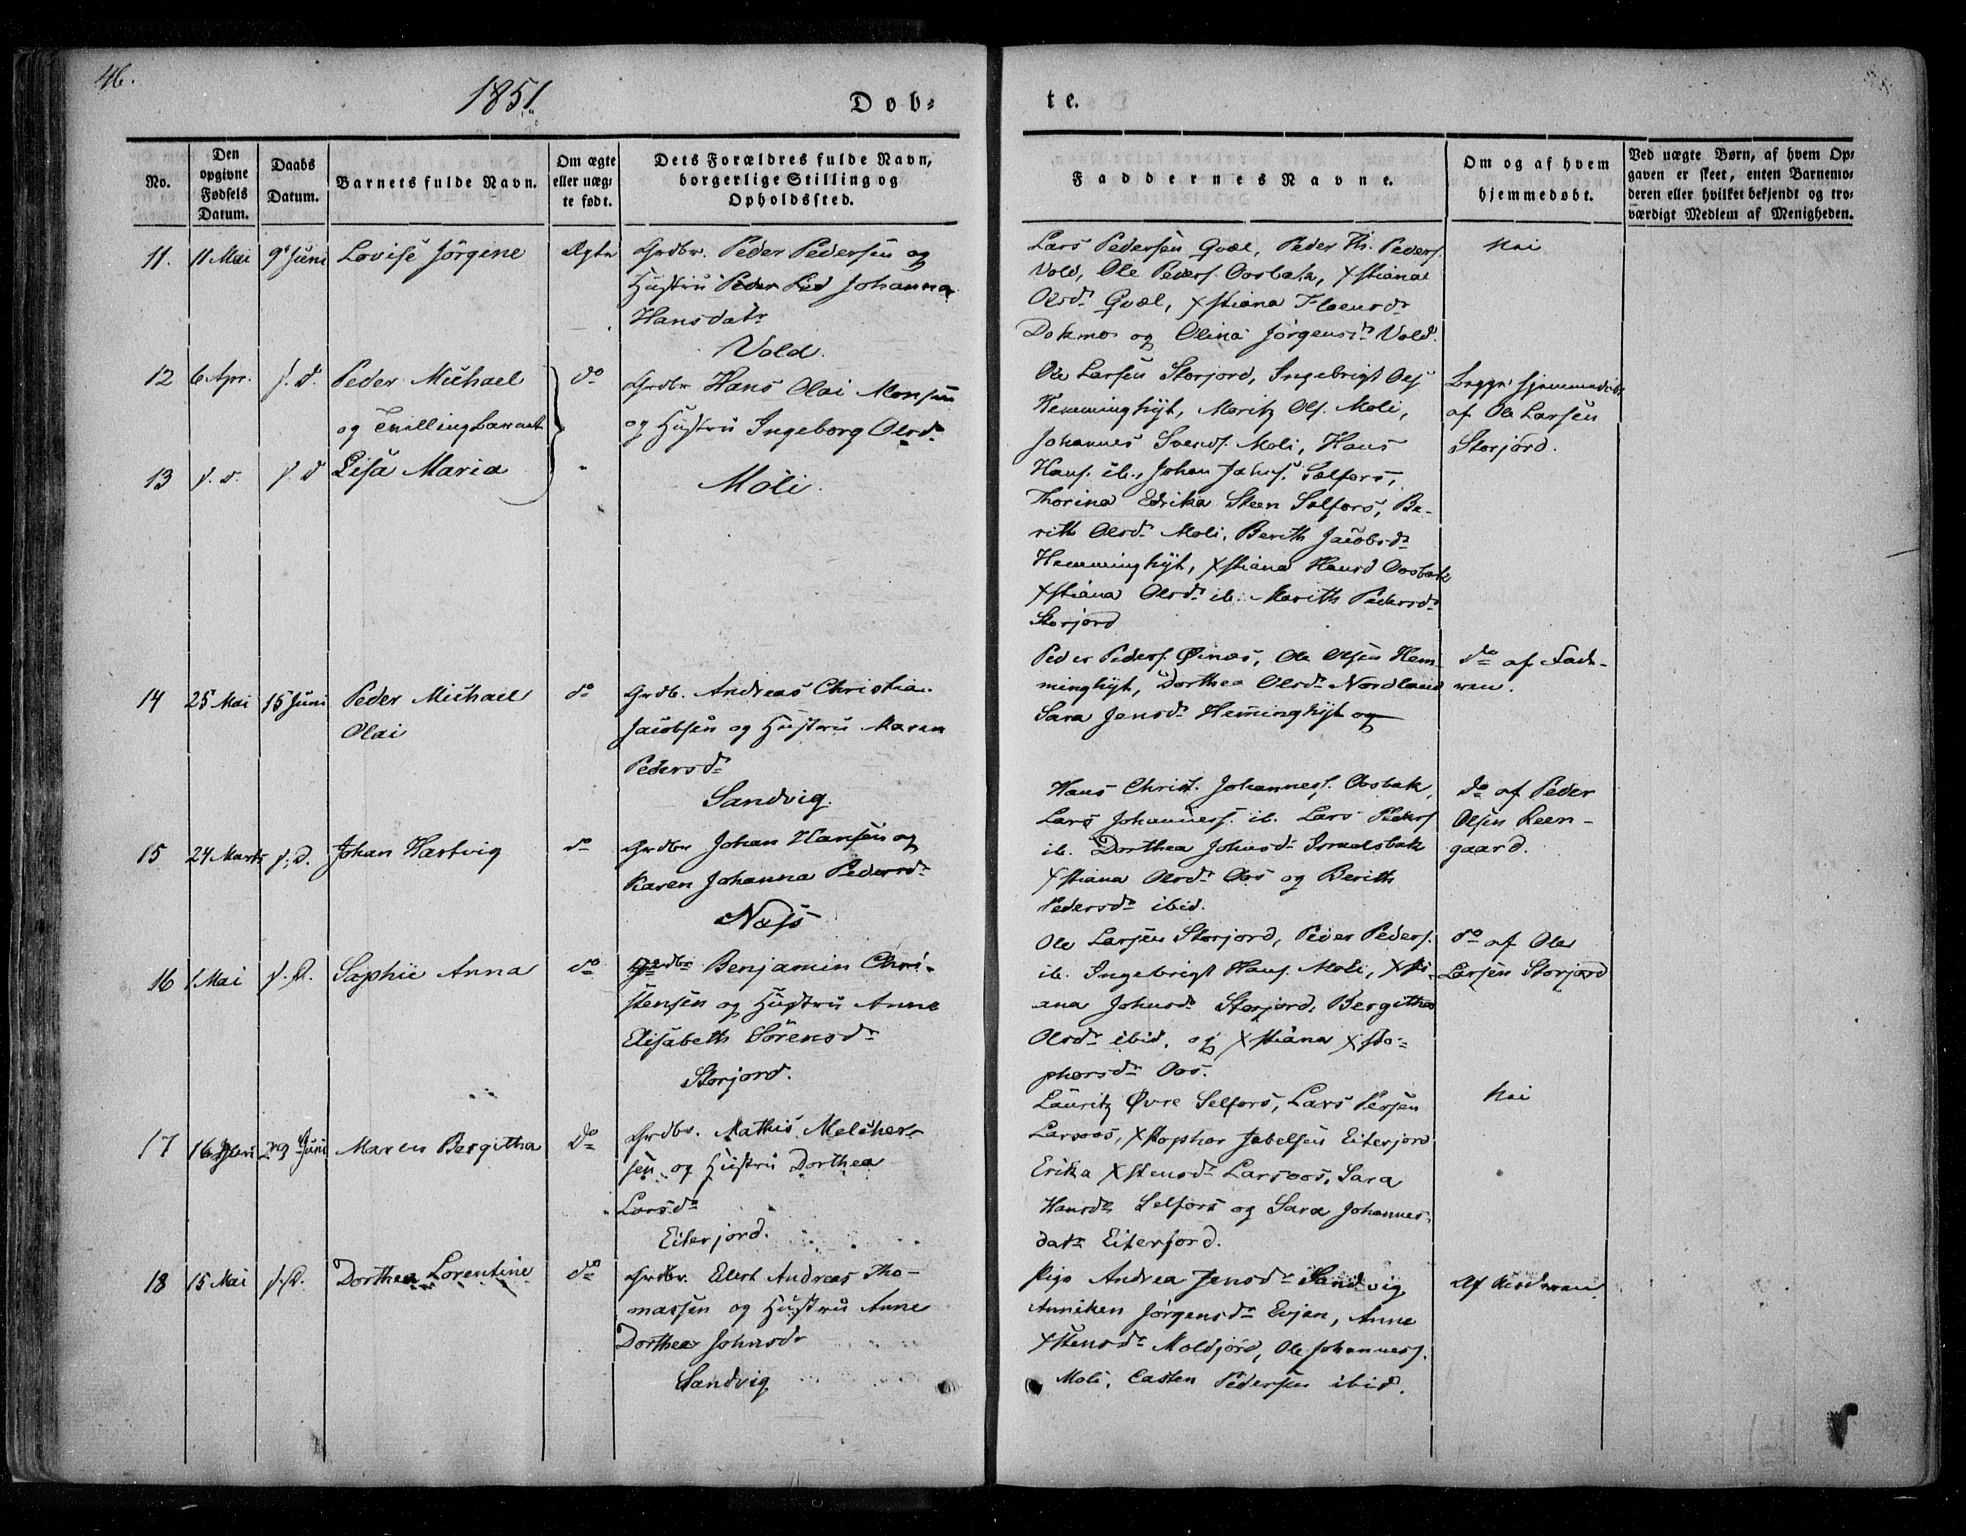 46.
1851
Døb-
te.
No.
Den opgivne Fødsels Datum.
Daabs Datum.
Barnets fulde Navn.
Om ægte eller uægte født.
Dets Forældres fulde Navn, borgerlige Stilling og Opholdssted.
Faddernes Navne.
Om og af hvem hjemmedøbt.
Ved uægte Børn, af hvem Opgaven er skeet, enten Barnemoderen eller hvilket bekjendt og troværdigt Medlem af Menigheden.
11. 11 Mai 9d Juni Lovise Jørgine Ægte Grdbr. Peder Pedersen og
Hustru Johanna
Hansdatr
Vold.
Lars Pedersen Qvæl, Peder Th. Peders.
Vold, Ole Peders. Oosbak, Xstiana
Olsdr Qvæl, Xstiana
Dokmo og Olina Jørgensdr Vold.
Nei
12 6 Apr. s. D. Peder Michael do Grdbr Hans Olai Monsen
og Tvillingbarnet og Hustru Ingeborg Olsdr
13 s. D. s. D Lisa Maria "
Moli.
Ole Larsen Storjord, Ingebrigt Ols.
Hemminghyt, Moritz Ols. Moli,
Johannes Svends. Moli, Hans
Hans. ib., Johan Selfors,
Thorina Edrika Steen Selfors, Be-
rith Olsdr Moli, Berith Jacobsdr
Hemminghyt, Xstiana Hansd Oosbak
Xstiana Olsdr ib. Marith Pedersdr
Storjord
Begge hjemmedøbt
af Ole Larsen
Storjord.
14 25 Mai 15 Juni Peder Michael do Grdb. Andreas Christian
Olai Jacobsen og Hustru Maren
Pedersdr
Sandvig.
Peder Peders. Øinæs, Ole Olsen Hem-
minghyt, Dorthea Olsdr Nordland
Sara Jensdr Heminghyt og
do af Fade-
ren.
15 24 Marts s. D. Johan Hartvig do Grdbr Johan Hansen og
Karen Johanna Pedersdr
Næss
Hans Christ. Johannes. Oosbak,
Lars Johannes. ib. Lars Peders
ib. Dorthea Johnsdr
Xstiana Olsdr Oos og Berith
Pedersdr ibid.
do af Peder
Olsen Leen-
gaard.
16 1 Mai s. D. Sophie Anna do Grdbr Benjamin Chri-
stensen og Hustru Anne
Elisabeth Sørensdr
Storjord.
Ole Larsen Storjord, Peder Peders.
ib. Ingebrigt Hans. Moli, Xsti-
ana Johnsdr Storjord, Bergitha
Olsdr ibid, og Xstiana Xsto-
phersdr Oos.
do af Ole
Larsen Storjord
17 16 29 Juni Maren Bergitha Do Grdbr. Mathis Melcher-
sen og Hustru Dorthea
Larsdr
Eiterjord.
Lauritz Øvre Selfors, Lars Persen
Larsoos, Xstopher Eiterjord
Erika Xstensdr Larsoos, Sara
Hansdr Selfors og Sara Johannes-
datr Eiterjord.
Nei
18 15 Mai s. D. Dorthea Lorentine do Grdbr. Elert Andreas Tho-
massen og Hustru Anne
Dorthea Johnsdr
Sandvig
Pige Andrea Jensdr Sandvig
Anniken Jørgensdr Evjen, Anne
Xstensdr Moldjord, Ole Johannes.
Moli, Casten Pedersen ibid.